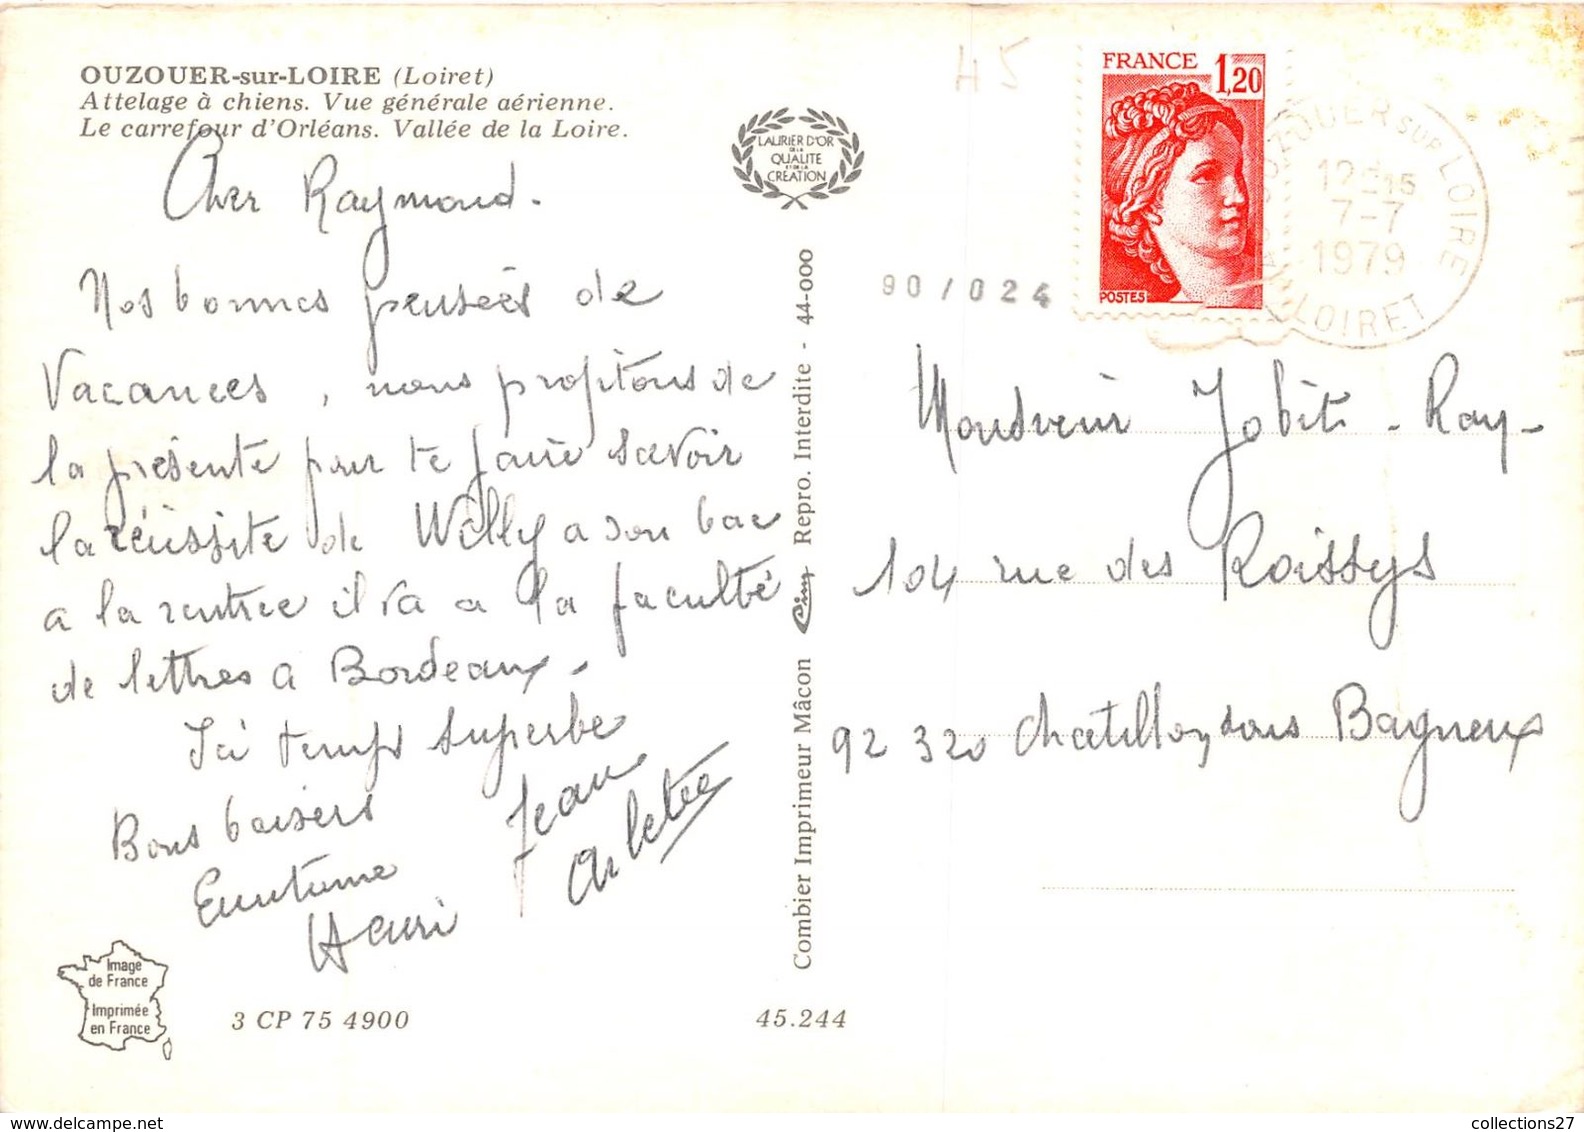 OUZOUER-sur-LOIRE (Loiret)
Attelage à chiens. Vue générale aérienne.
Le carrefour d'Orléans. Vallée de la Loire.
Cher Raymond.
Nos bonnes pensées de
Vacances, nous profitons de
la présente pour te faire savoir
la réussite de Willy a son bac
a la rentrée il va a la faculté
de lettres a Bordeaux -
Ici temps superbe
Bons baisers
Jean
Arlette
Henri
Image
de France
Imprimée
en France
3 CP 75 4900
45.244
LAURIER D'OR
DE LA
QUALITE
ET DE LA
CREATION
Combier Imprimeur Mâcon Cim Repro. Interdite - 44-000
H5
FRANCE 1,20
POSTES
OUZOUER SUR LOIRE
12H15
7-7
1979
LOIRET
90/024
Monsieur Jobit - Ray-
104 rue des Roissys
92 320 Chatillon sous Bagneux
collections27